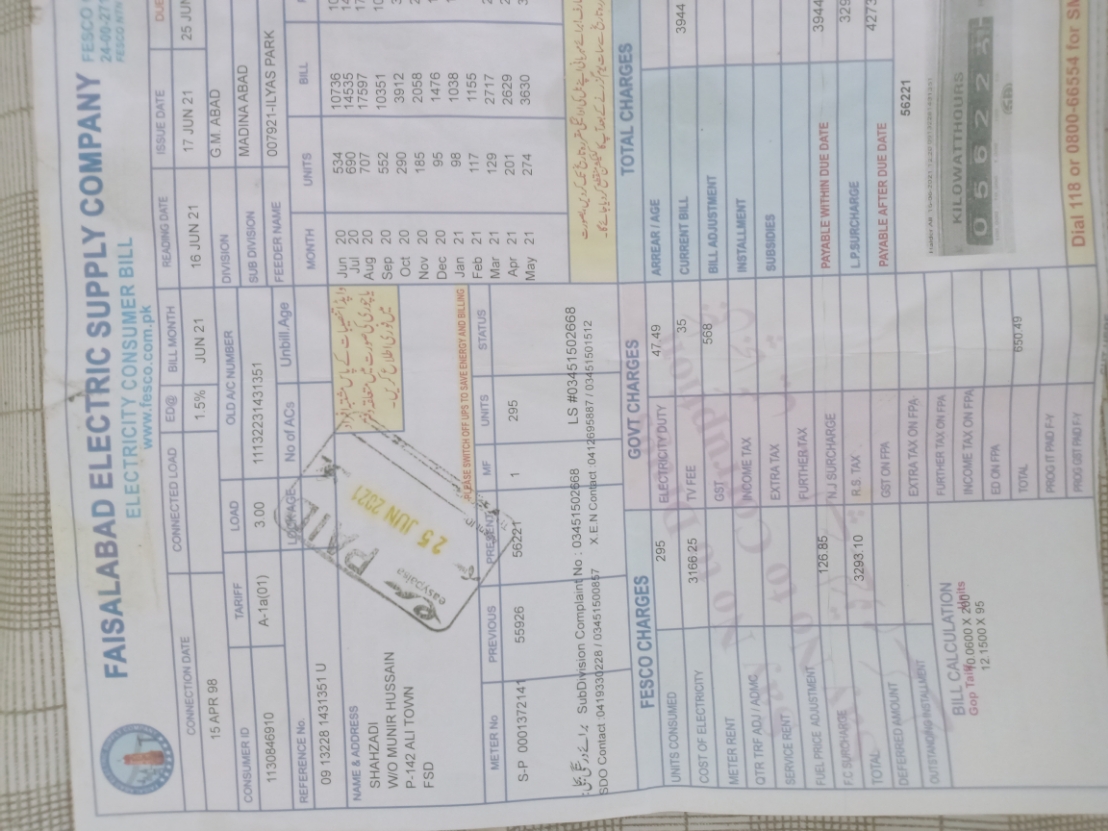 FAISALABAD ELECTRIC SUPPLY COMPANY
ELECTRICITY CONSUMER BILL
www.fesco.com.pk
CONNECTION DATE CONNECTED LOAD ED@ BILL MONTH READING DATE ISSUE DATE
15 APR 98 1.5% JUN 21 16 JUN 21 17 JUN 21 25 JUN
CONSUMER ID TARIFF LOAD OLD A/C NUMBER DIVISION G.M. ABAD
1130846910 A-1a(01) 3.00 11132231431351 SUB DIVISION MADINA ABAD
REFERENCE No. No of ACs Unbill.Age FEEDER NAME 007921-ILYAS PARK
09 13228 1431351 U
NAME & ADDRESS
SHAHZADI
W/O MUNIR HUSSAIN
P-142 ALI TOWN
FSD
MONTH UNITS BILL
Jun 20 534 10736
Jul 20 690 14535
Aug 20 707 17597
Sep 20 552 10351
Oct 20 290 3912
Nov 20 185 2058
Dec 20 95 1476
Jan 21 98 1038
Feb 21 117 1155
Mar 21 129 2717
Apr 21 201 2629
May 21 274 3630
PAID
25 JUN 2021
easypaisa
PLEASE SWITCH OFF UPS TO SAVE ENERGY AND BILLING
METER No PREVIOUS PRESENT MF UNITS STATUS
S-P 0001372141 55926 56221 1 295
SubDivision Complaint No : 03451502668 LS #03451502668
SDO Contact :0419330228 / 03451500857 X.E.N Contact :0412695887 / 03451501512
FESCO CHARGES GOVT CHARGES TOTAL CHARGES
UNITS CONSUMED 295 ELECTRICITY DUTY 47.49 ARREAR / AGE
COST OF ELECTRICITY 3166.25 TV FEE 35 CURRENT BILL 3944
METER RENT GST 568 BILL ADJUSTMENT
QTR TRF ADJ / ADMC INCOME TAX INSTALLMENT
SERVICE RENT EXTRA TAX SUBSIDIES
FUEL PRICE ADJUSTMENT 126.85 FURTHER TAX PAYABLE WITHIN DUE DATE 3944
F.C SURCHARGE N.J SURCHARGE L.P.SURCHARGE 329
TOTAL 3293.10 R.S. TAX PAYABLE AFTER DUE DATE 4273
DEFERRED AMOUNT GST ON FPA
OUTSTANDING INSTALLMENT EXTRA TAX ON FPA
FURTHER TAX ON FPA
INCOME TAX ON FPA
ED ON FPA
TOTAL 650.49
PROG IT PAID F-Y
PROG GST PAID F-Y
Say No to Corruption
BILL CALCULATION
12.1500 X 95
56221
KILOWATTHOURS
Dial 118 or 0800-66554 for